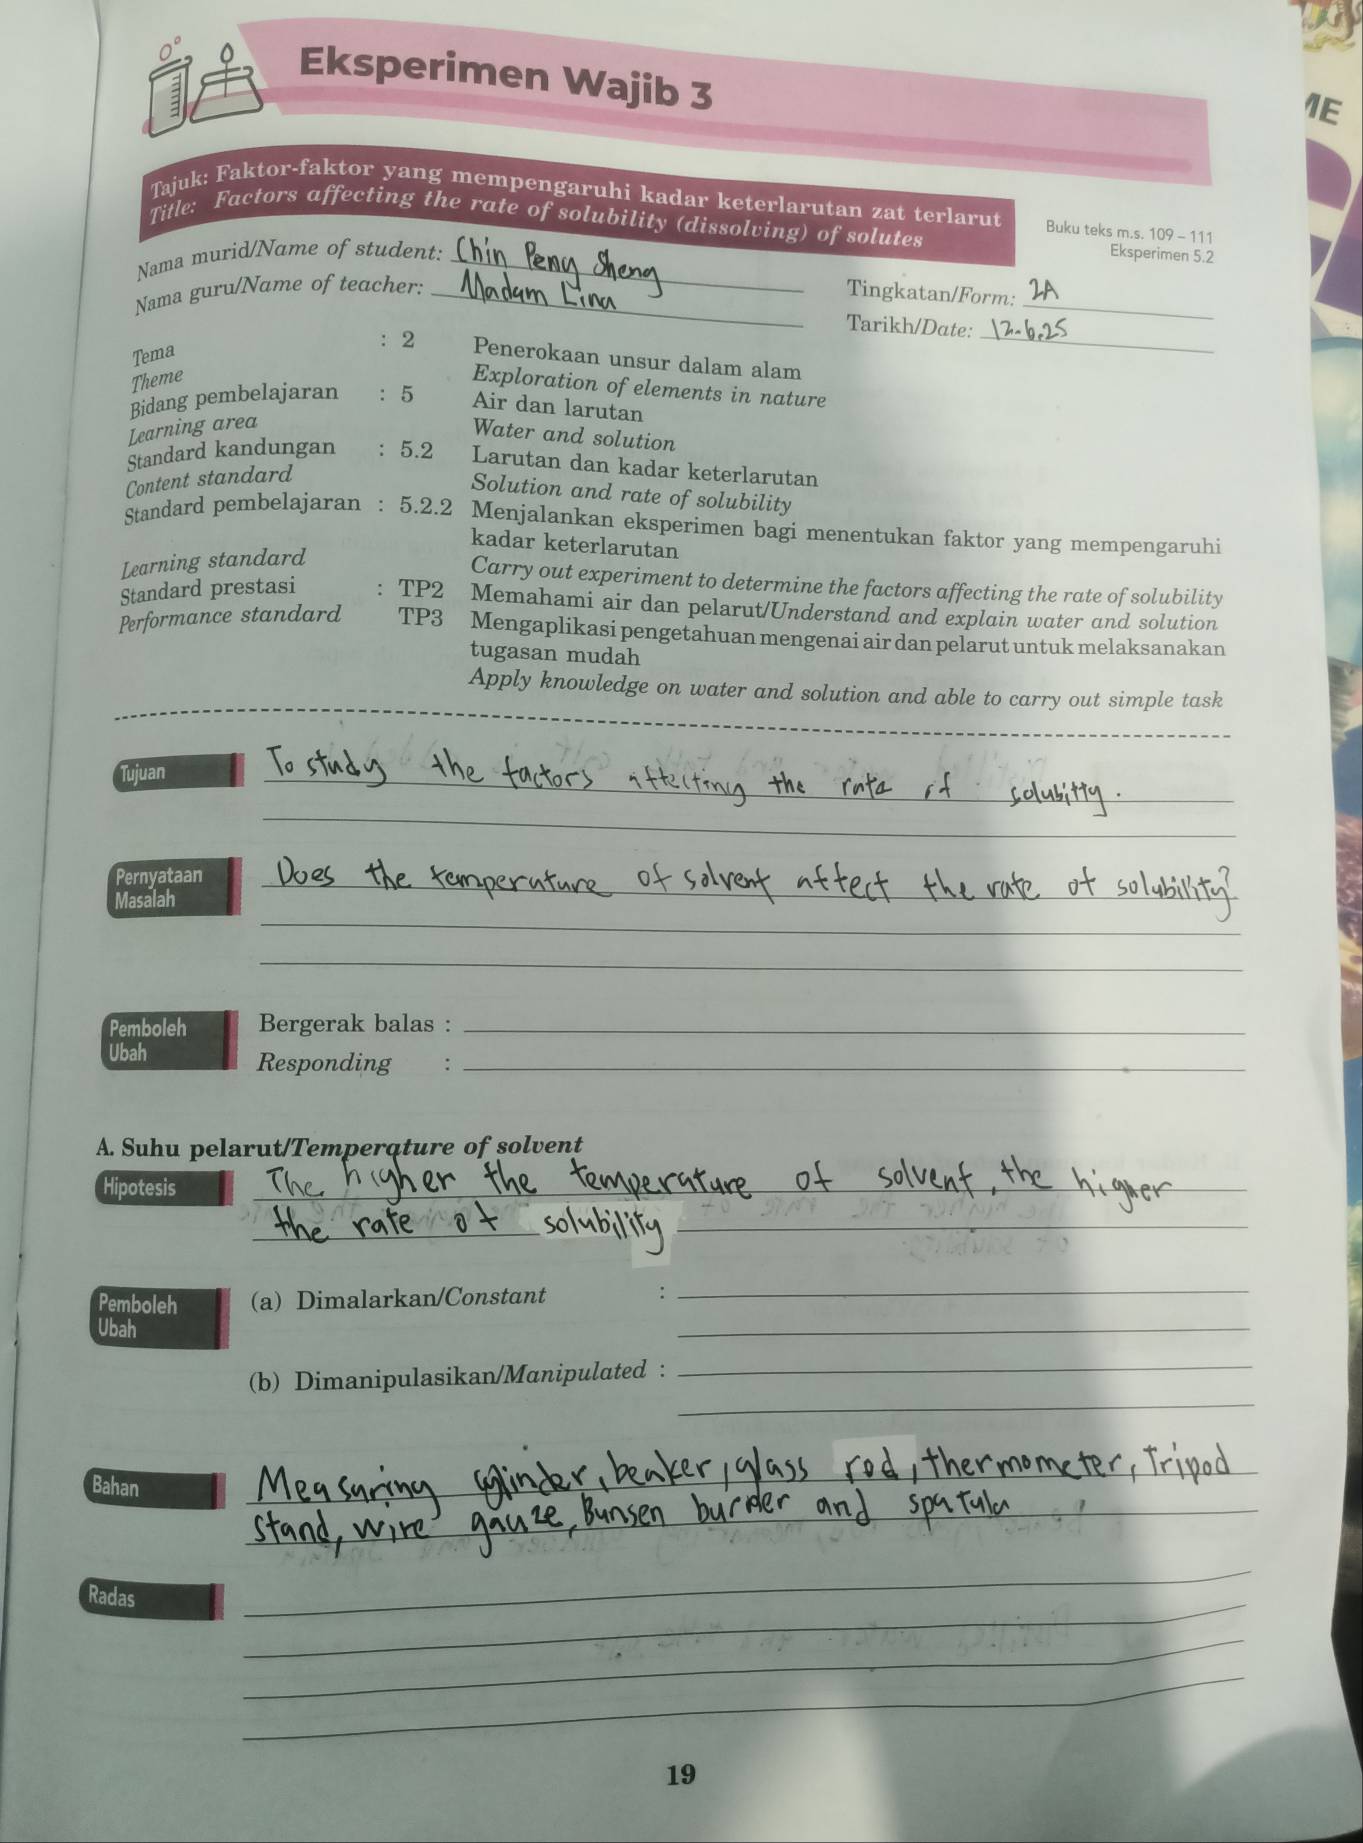 Eksperimen Wajib 3
Tajuk: Faktor-faktor yang mempengaruhi kadar keterlarutan zat terlarut
Title: Factors affecting the rate of solubility (dissolving) of solutes
Buku teks m.s. 109 – 111
Eksperimen 5.2
Nama murid/Name of student: Chin Peng Sheng
Tingkatan/Form: 2A
Nama guru/Name of teacher: Madam Lina
Tarikh/Date: 12.6.25
Tema : 2 Penerokaan unsur dalam alam
Theme Exploration of elements in nature
Bidang pembelajaran : 5 Air dan larutan
Learning area Water and solution
Standard kandungan : 5.2 Larutan dan kadar keterlarutan
Content standard Solution and rate of solubility
Standard pembelajaran : 5.2.2 Menjalankan eksperimen bagi menentukan faktor yang mempengaruhi
kadar keterlarutan
Learning standard Carry out experiment to determine the factors affecting the rate of solubility
Standard prestasi : TP2 Memahami air dan pelarut/Understand and explain water and solution
Performance standard TP3 Mengaplikasi pengetahuan mengenai air dan pelarut untuk melaksanakan
tugasan mudah
Apply knowledge on water and solution and able to carry out simple task
Tujuan To study the factors affecting the rate of solubitty.
Pernyataan Masalah Does the temperature of solvent affect the rate of solubility?
Pemboleh Ubah Bergerak balas :
Responding :
A. Suhu pelarut/Temperature of solvent
Hipotesis The higher the temperature of solvent, the higher
the rate of solubility
Pemboleh Ubah (a) Dimalarkan/Constant :
(b) Dimanipulasikan/Manipulated :
Bahan Measuring cylinder, beaker, glass rod, thermometer, Tripod
stand, wire gauze, Bunsen burner and spatula
Radas
19